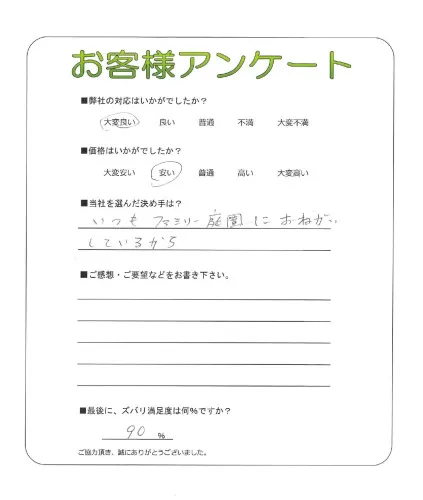 お客様アンケート
■弊社の対応はいかがでしたか？
大変良い 良い 普通 不満 大変不満
■価格はいかがでしたか？
大変安い 安い 普通 高い 大変高い
■当社を選んだ決め手は？
いつもファミリー庭園におねがい
しているから
■ご感想・ご要望などをお書き下さい。
■最後に、ズバリ満足度は何%ですか？
90 %
ご協力頂き、誠にありがとうございました。